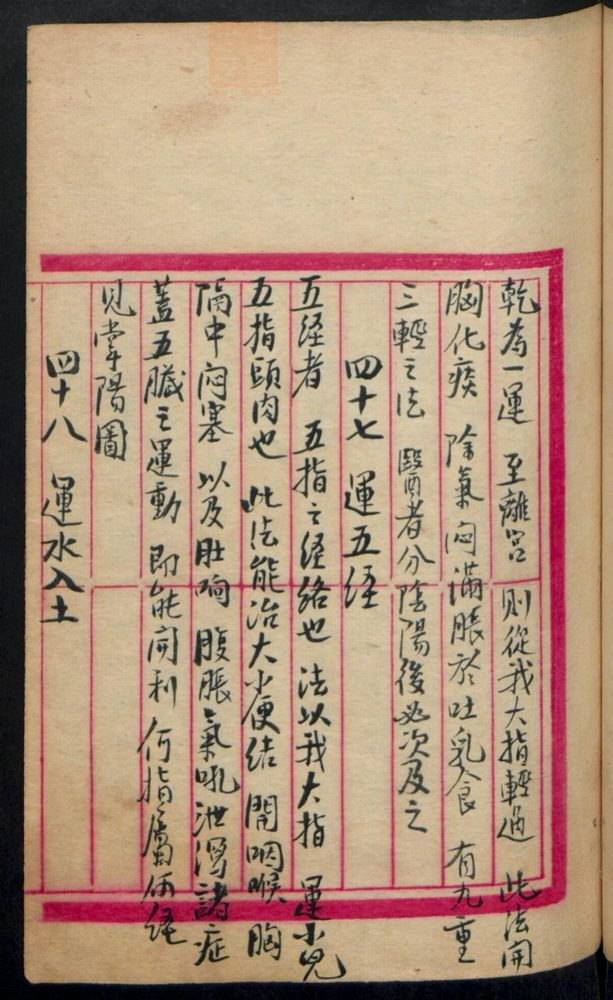 乾為一運 至離宮 則從我大指輕過 此法開
胸化痰 除氣悶滿脹於吐乳食 有九重
三輕之法 醫者分陰陽後必次及之
四十七 運五経
五経者 五指之経絡也 法以我大指 運小兒
五指頭肉也 此法能治大小便结 開咽喉 胸
隔中悶塞 以及肚响 腹脹 氣吼 泄瀉諸症
蓋五臟之運動 即能開利 何指屬何経
見掌陽圖
四十八 運水入土